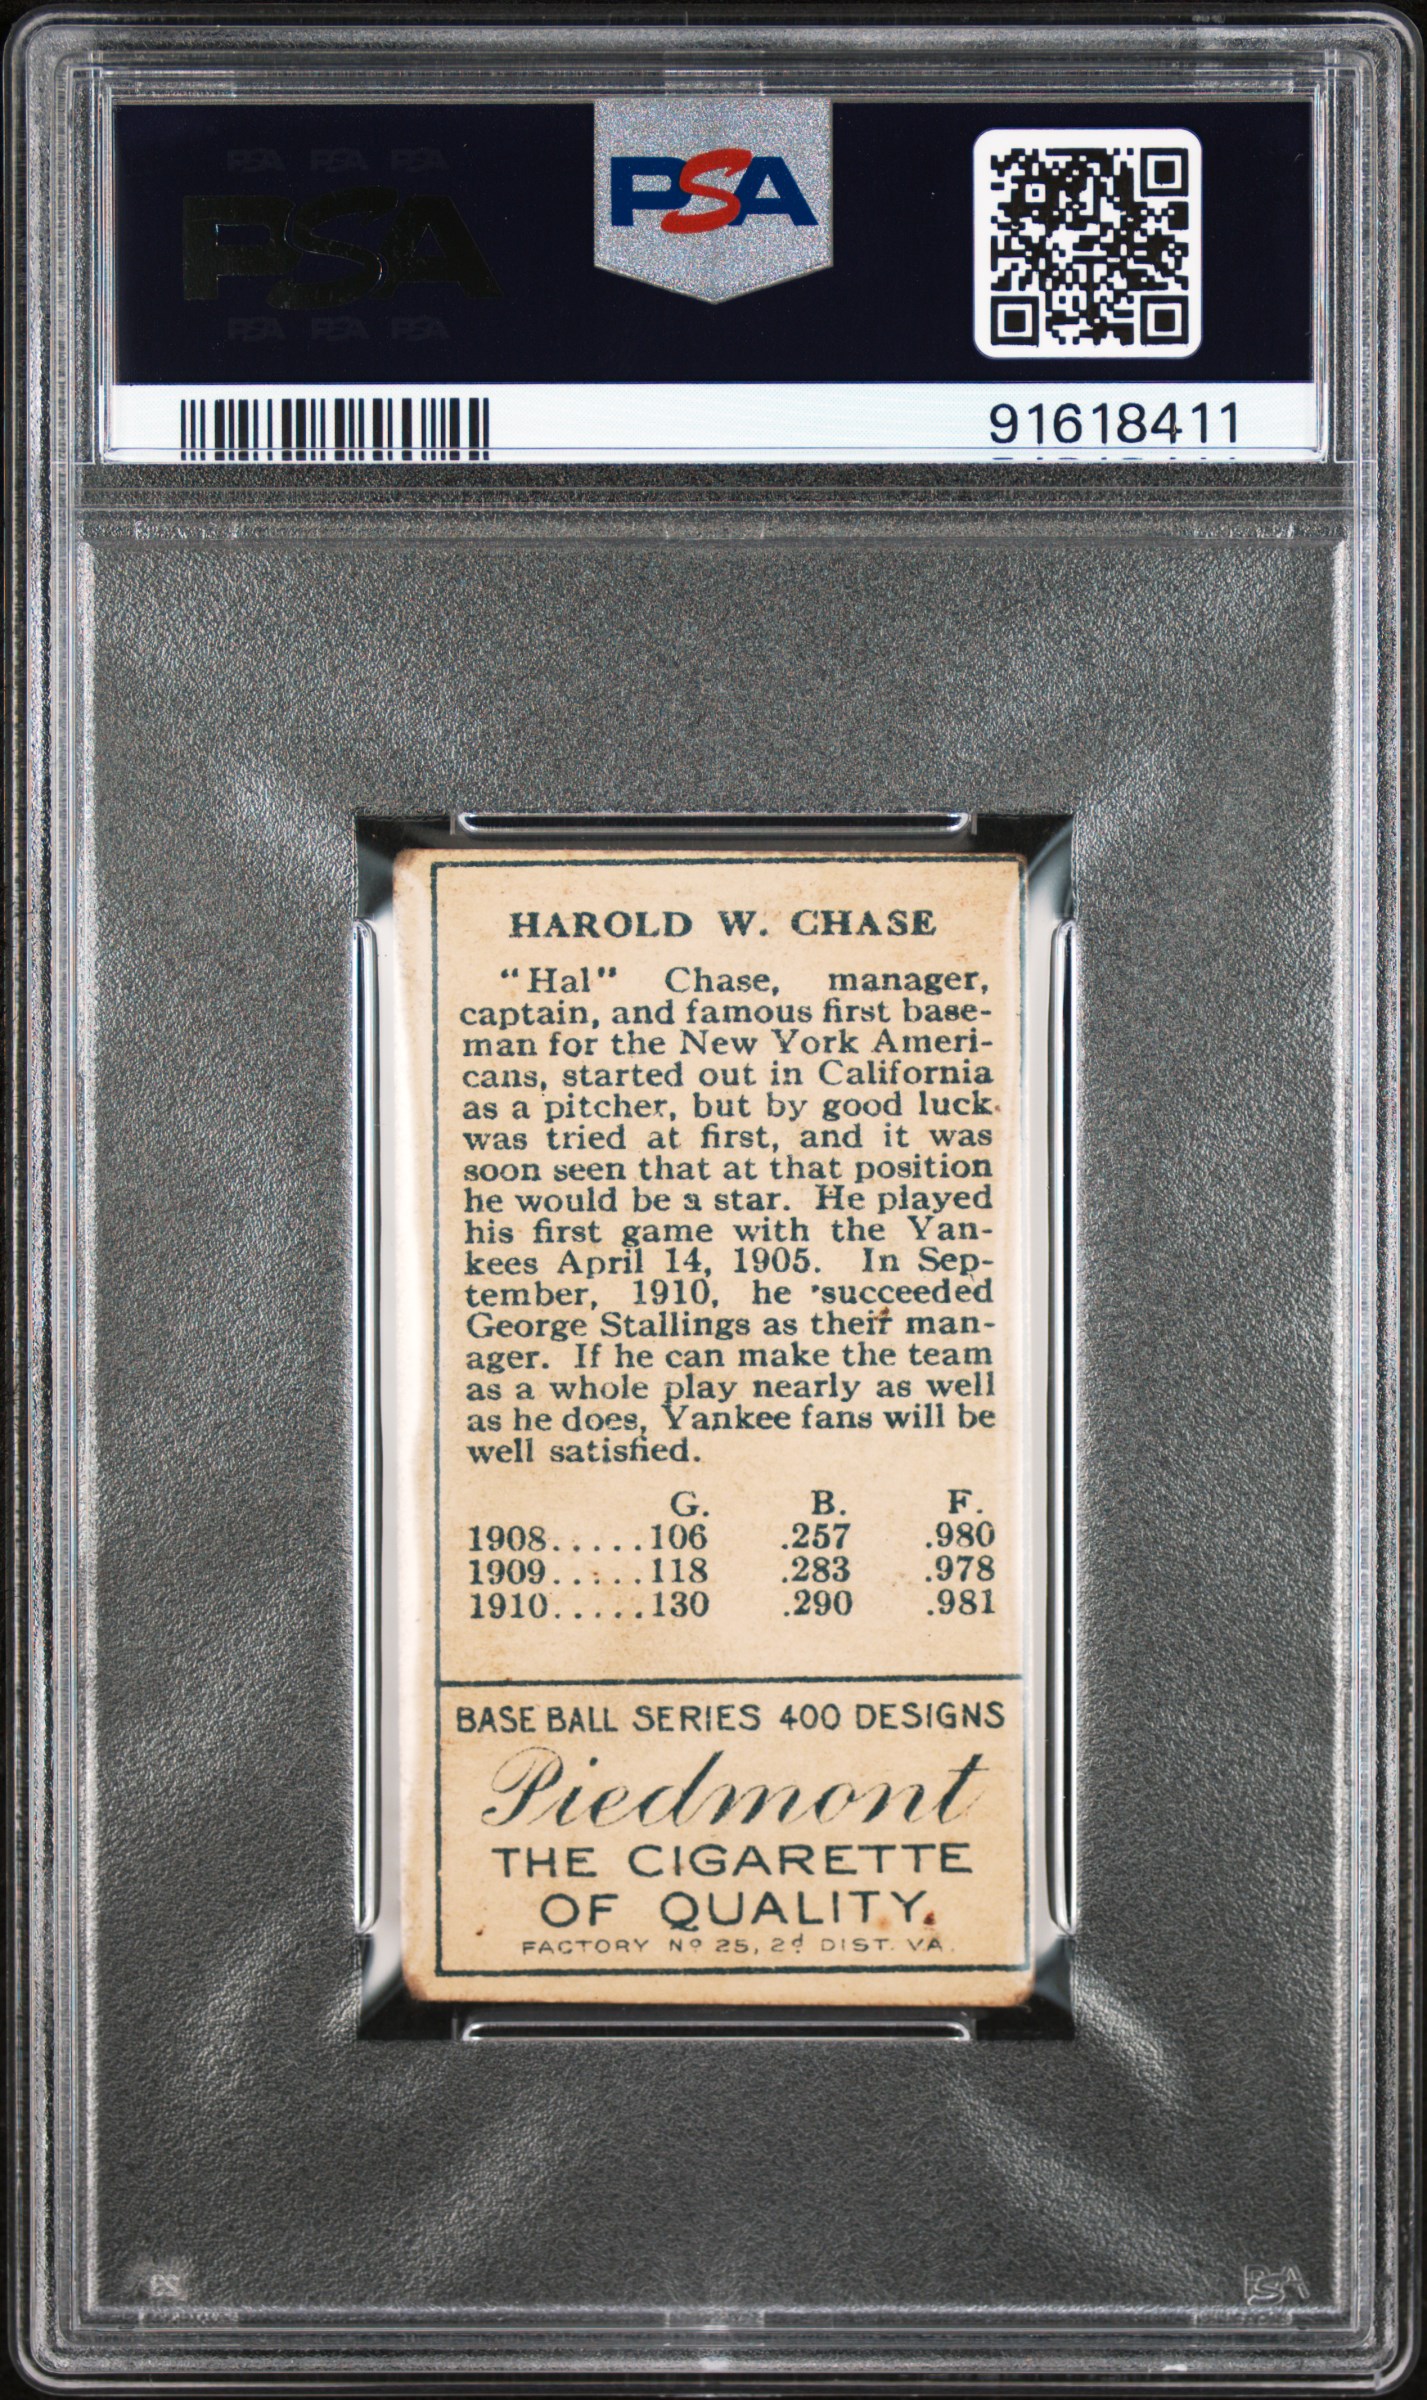 PSA PSA PSA
PSA
PSA PSA PSA
PSA
91618411
HAROLD W. CHASE
"Hal" Chase, manager,
captain, and famous first base-
man for the New York Ameri-
cans, started out in California
as a pitcher, but by good luck
was tried at first, and it was
soon seen that at that position
he would be a star. He played
his first game with the Yan-
kees April 14, 1905. In Sep-
tember, 1910, he succeeded
George Stallings as their man-
ager. If he can make the team
as a whole play nearly as well
as he does, Yankee fans will be
well satisfied.
G. B. F.
1908.....106 .257 .980
1909.....118 .283 .978
1910.....130 .290 .981
BASE BALL SERIES 400 DESIGNS
Piedmont
THE CIGARETTE
OF QUALITY.
FACTORY Nº 25, 2d DIST. VA.
PSA